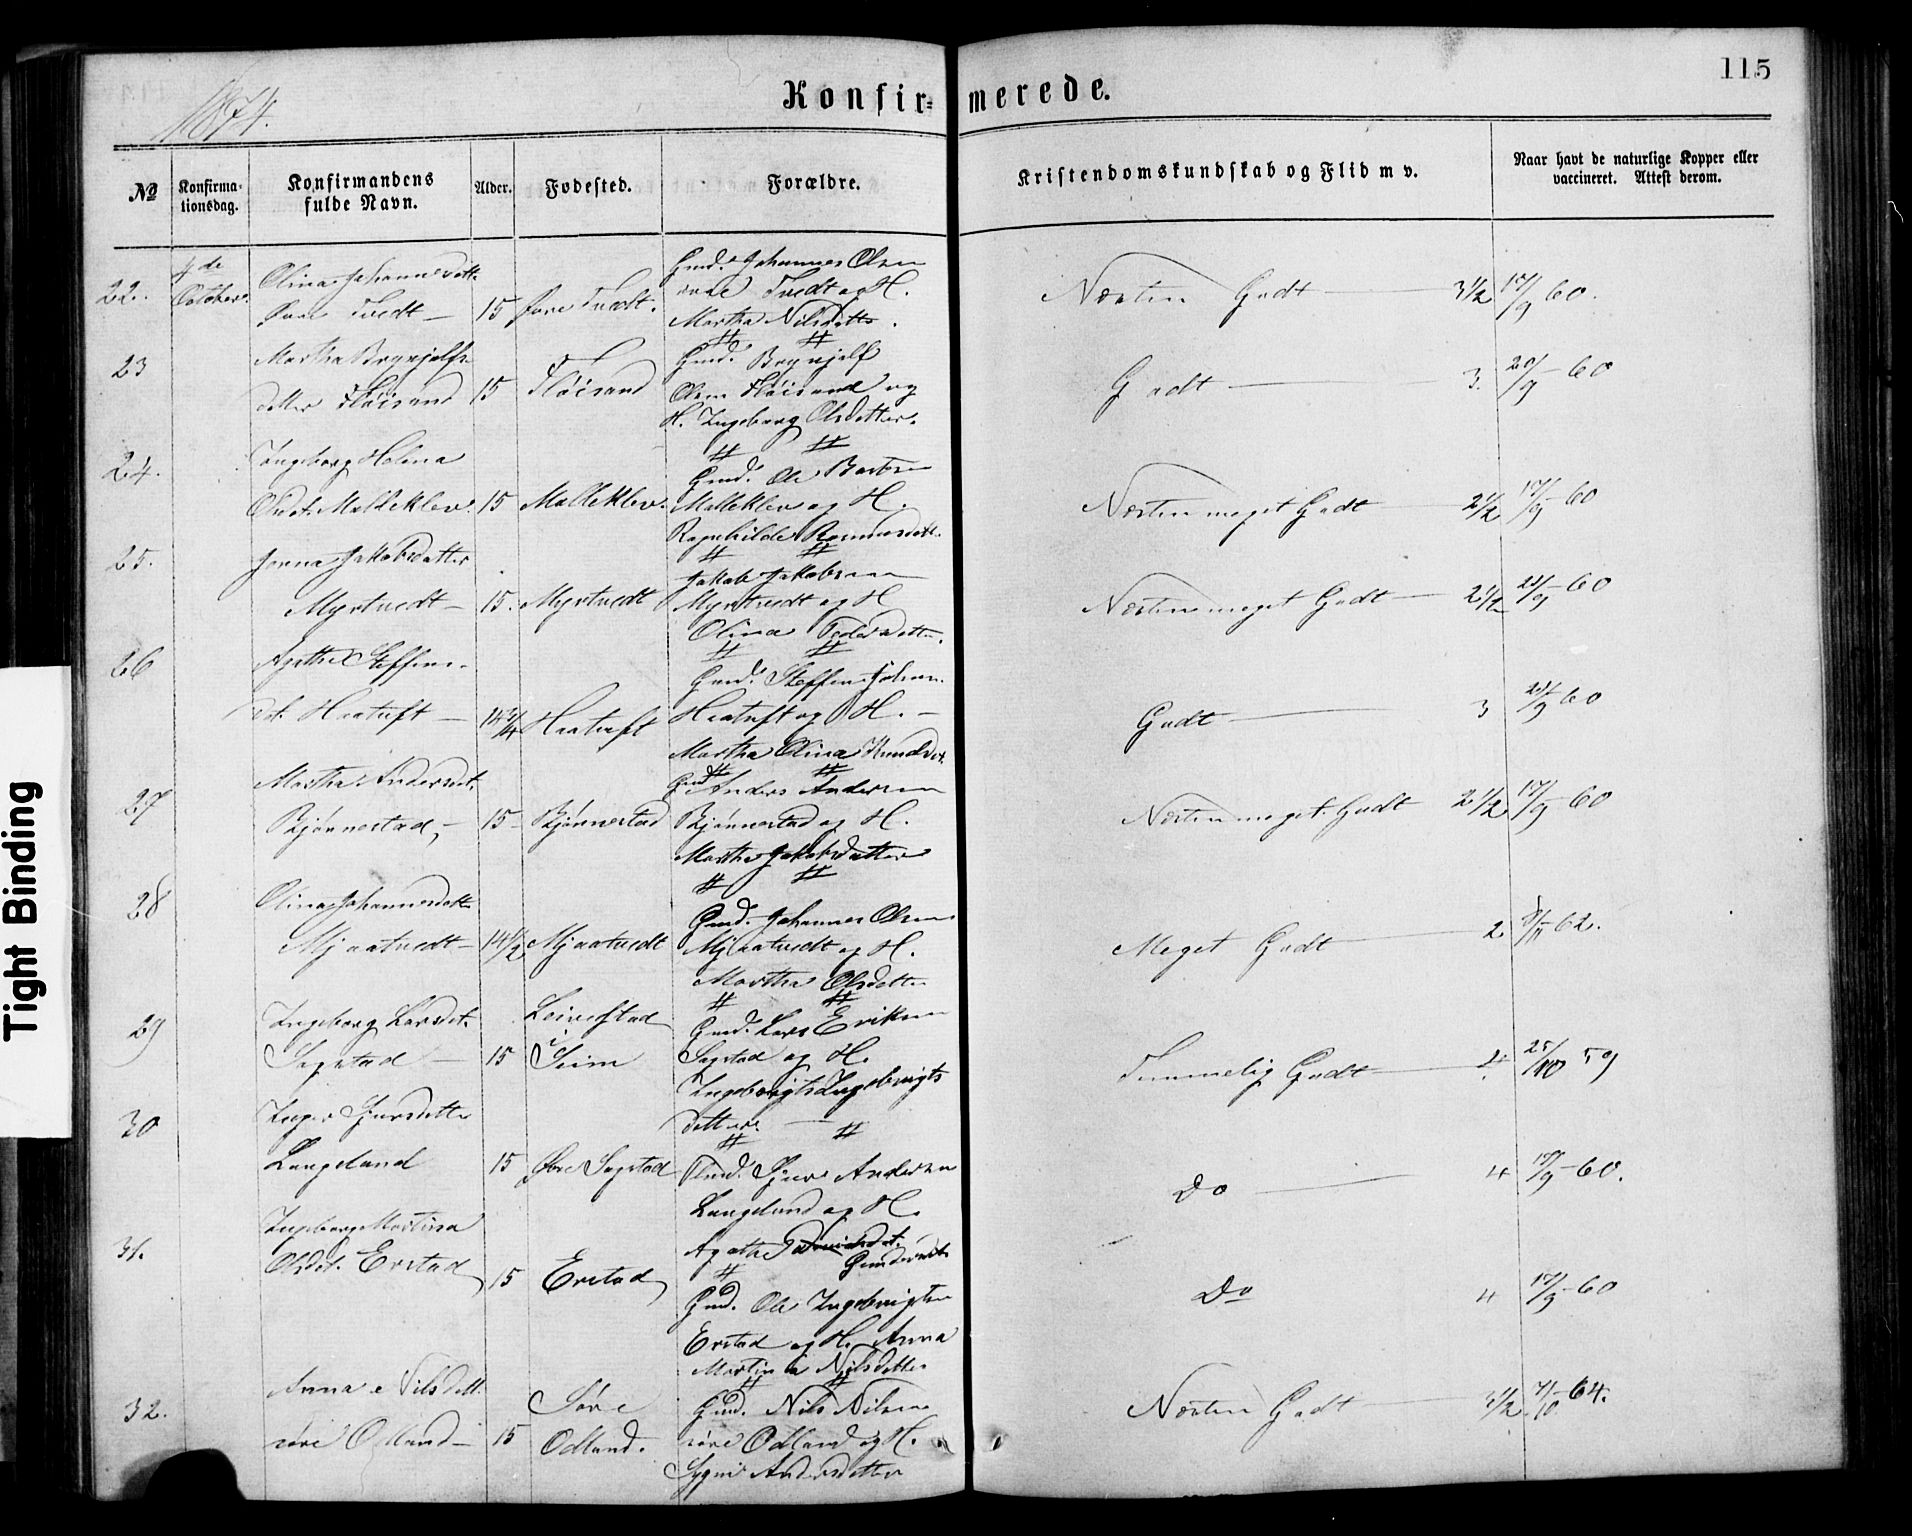 115
1874.
Konfir= merede.
No
Konfirma-
tionsdag.
Konfirmandens
fulde Navn.
Alder.
Fødested.
Forældre.
Kristendomskundskab og Flid m v.
Naar havt de naturlige Kopper eller
vaccineret. Attest derom.
22. 4de October. Olina Johannesdatt. Øvre Tvedt — 15 Øvre Tvedt.
Gmd. Johannes Olsen
øvre Tvedt og H.
Martha Nilsdatter.
Næsten Godt — 3½ 17/9 60.
23 Martha Brynjelfs-
datter Fløisand 15 Fløisand
Gmd. Brynjelf
Olsen Fløisand og
H. Ingeborg Olsdatter.
Godt — 3. 20/9 60
24. Ingeborg Helena
Olsdt. Molleklev. 15 Molleklev.
Gmd. Ole
Molleklev og H.
Ragnhilde Rasmusdatt.
Næsten meget Godt — 2½ 17/9 — 60
25. Jakobsdatter
Myrtvedt — 15. Myrtvedt
Jakob Jakobsen
Myrtvedt og H
Olina Pedersdatter.
Næsten meget Godt — 2½ 21/9 — 60
26 Agathe Steffens-
dt. Haatuft — 14¾ Haatuft
Gmd. Steffen Johans.
Haatuft og H. —
Martha Olina Knudsdt.
Godt — 3 /9 60
27 Martha Andersdt.
Bjørnestad, — 15 — Bjørnestad
Gmd. Anders Andersen
Bjørnestad og H.
Martha Jakobsdatter
Næsten meget Godt 2½ 17/9 — 60
28 Olina Johannesdatt.
Mjaatvedt — 14½ Mjaatvedt
Gmd. Johannes Olsen
Mjaatvedt og H.
Martha Olsdatter
Meget Godt — 2 8/11 62.
29 Ingeborg Larsdt.
Sagstad — 15
i
Seim
Gmd. Lars Eriksen
Sagstad og H.
Ingebrigts
datter. —
Temmelig Godt — 4. 25/10 59
30 Inger Gjursdatter
Langeland 15 Øvre Sagstad
Gjur Andersen
Langeland og H.
Agathe Gundersdt.
Do — 4 17/9 — 60.
31. Ingeborg Martina
Olsdt. Erstad 15 Erstad
Gmd. Ole Ingebrigtsen
Erstad og H. Anna
Martina Nilsdatter
Do 4 17/9 — 60
32. Anna Nilsdatt.
søre Odland — 15 Søre
Odland.
Gmd. Nils Nilsen
søre Odland og H.
Andersdatter
Næsten Godt — 3½ 7/10 — 64.
Tight Binding